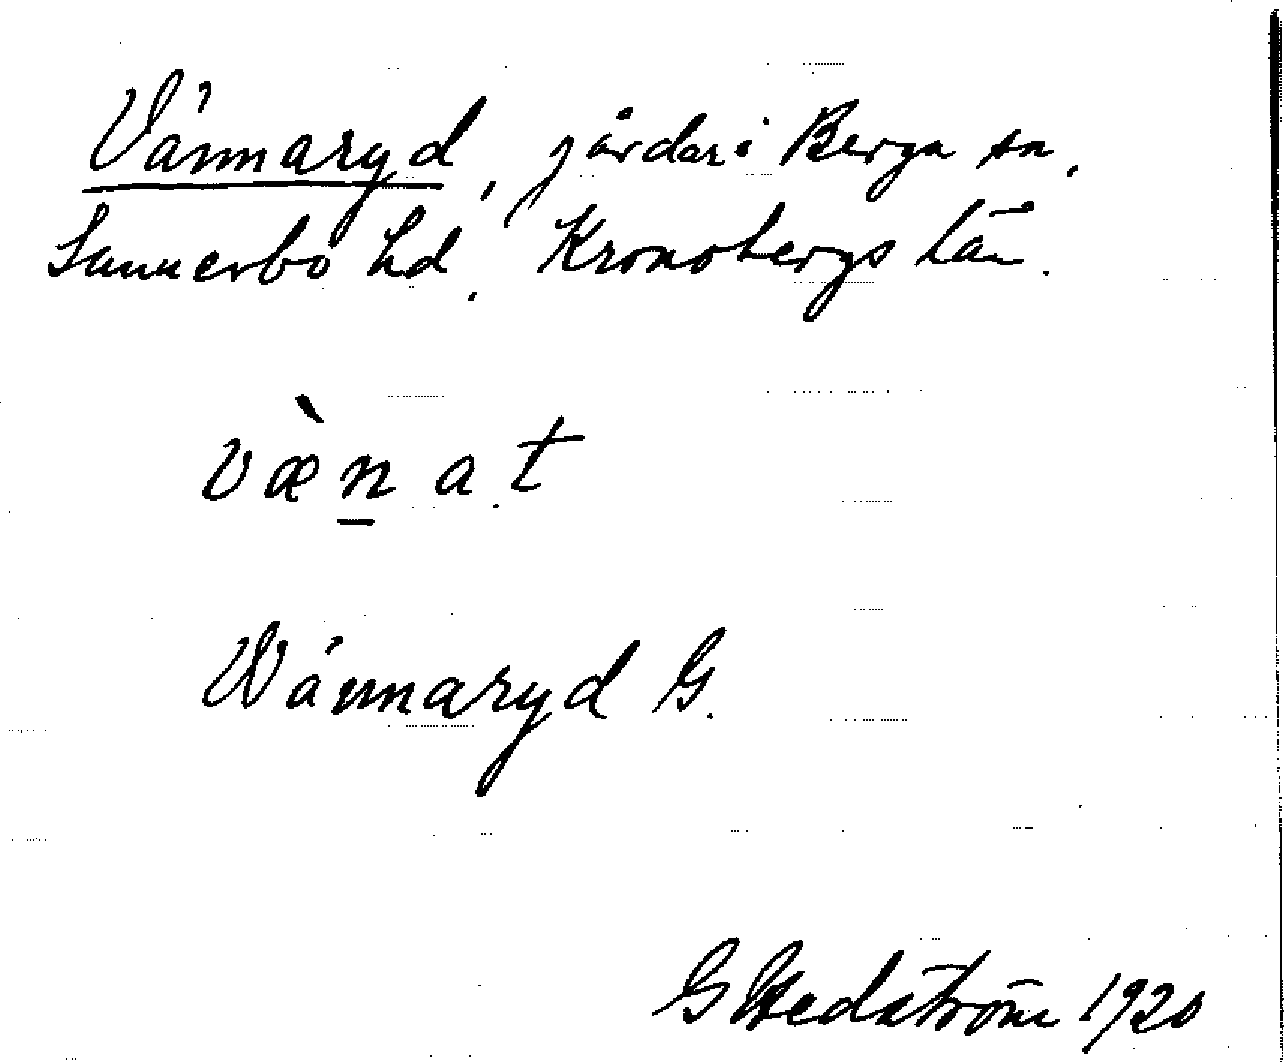 Vännaryd, gårdar i Berga sn,
Sunnerbo hd, Kronobergs län.
væ̀n̲at
Wännaryd G.
G Hedström 1920